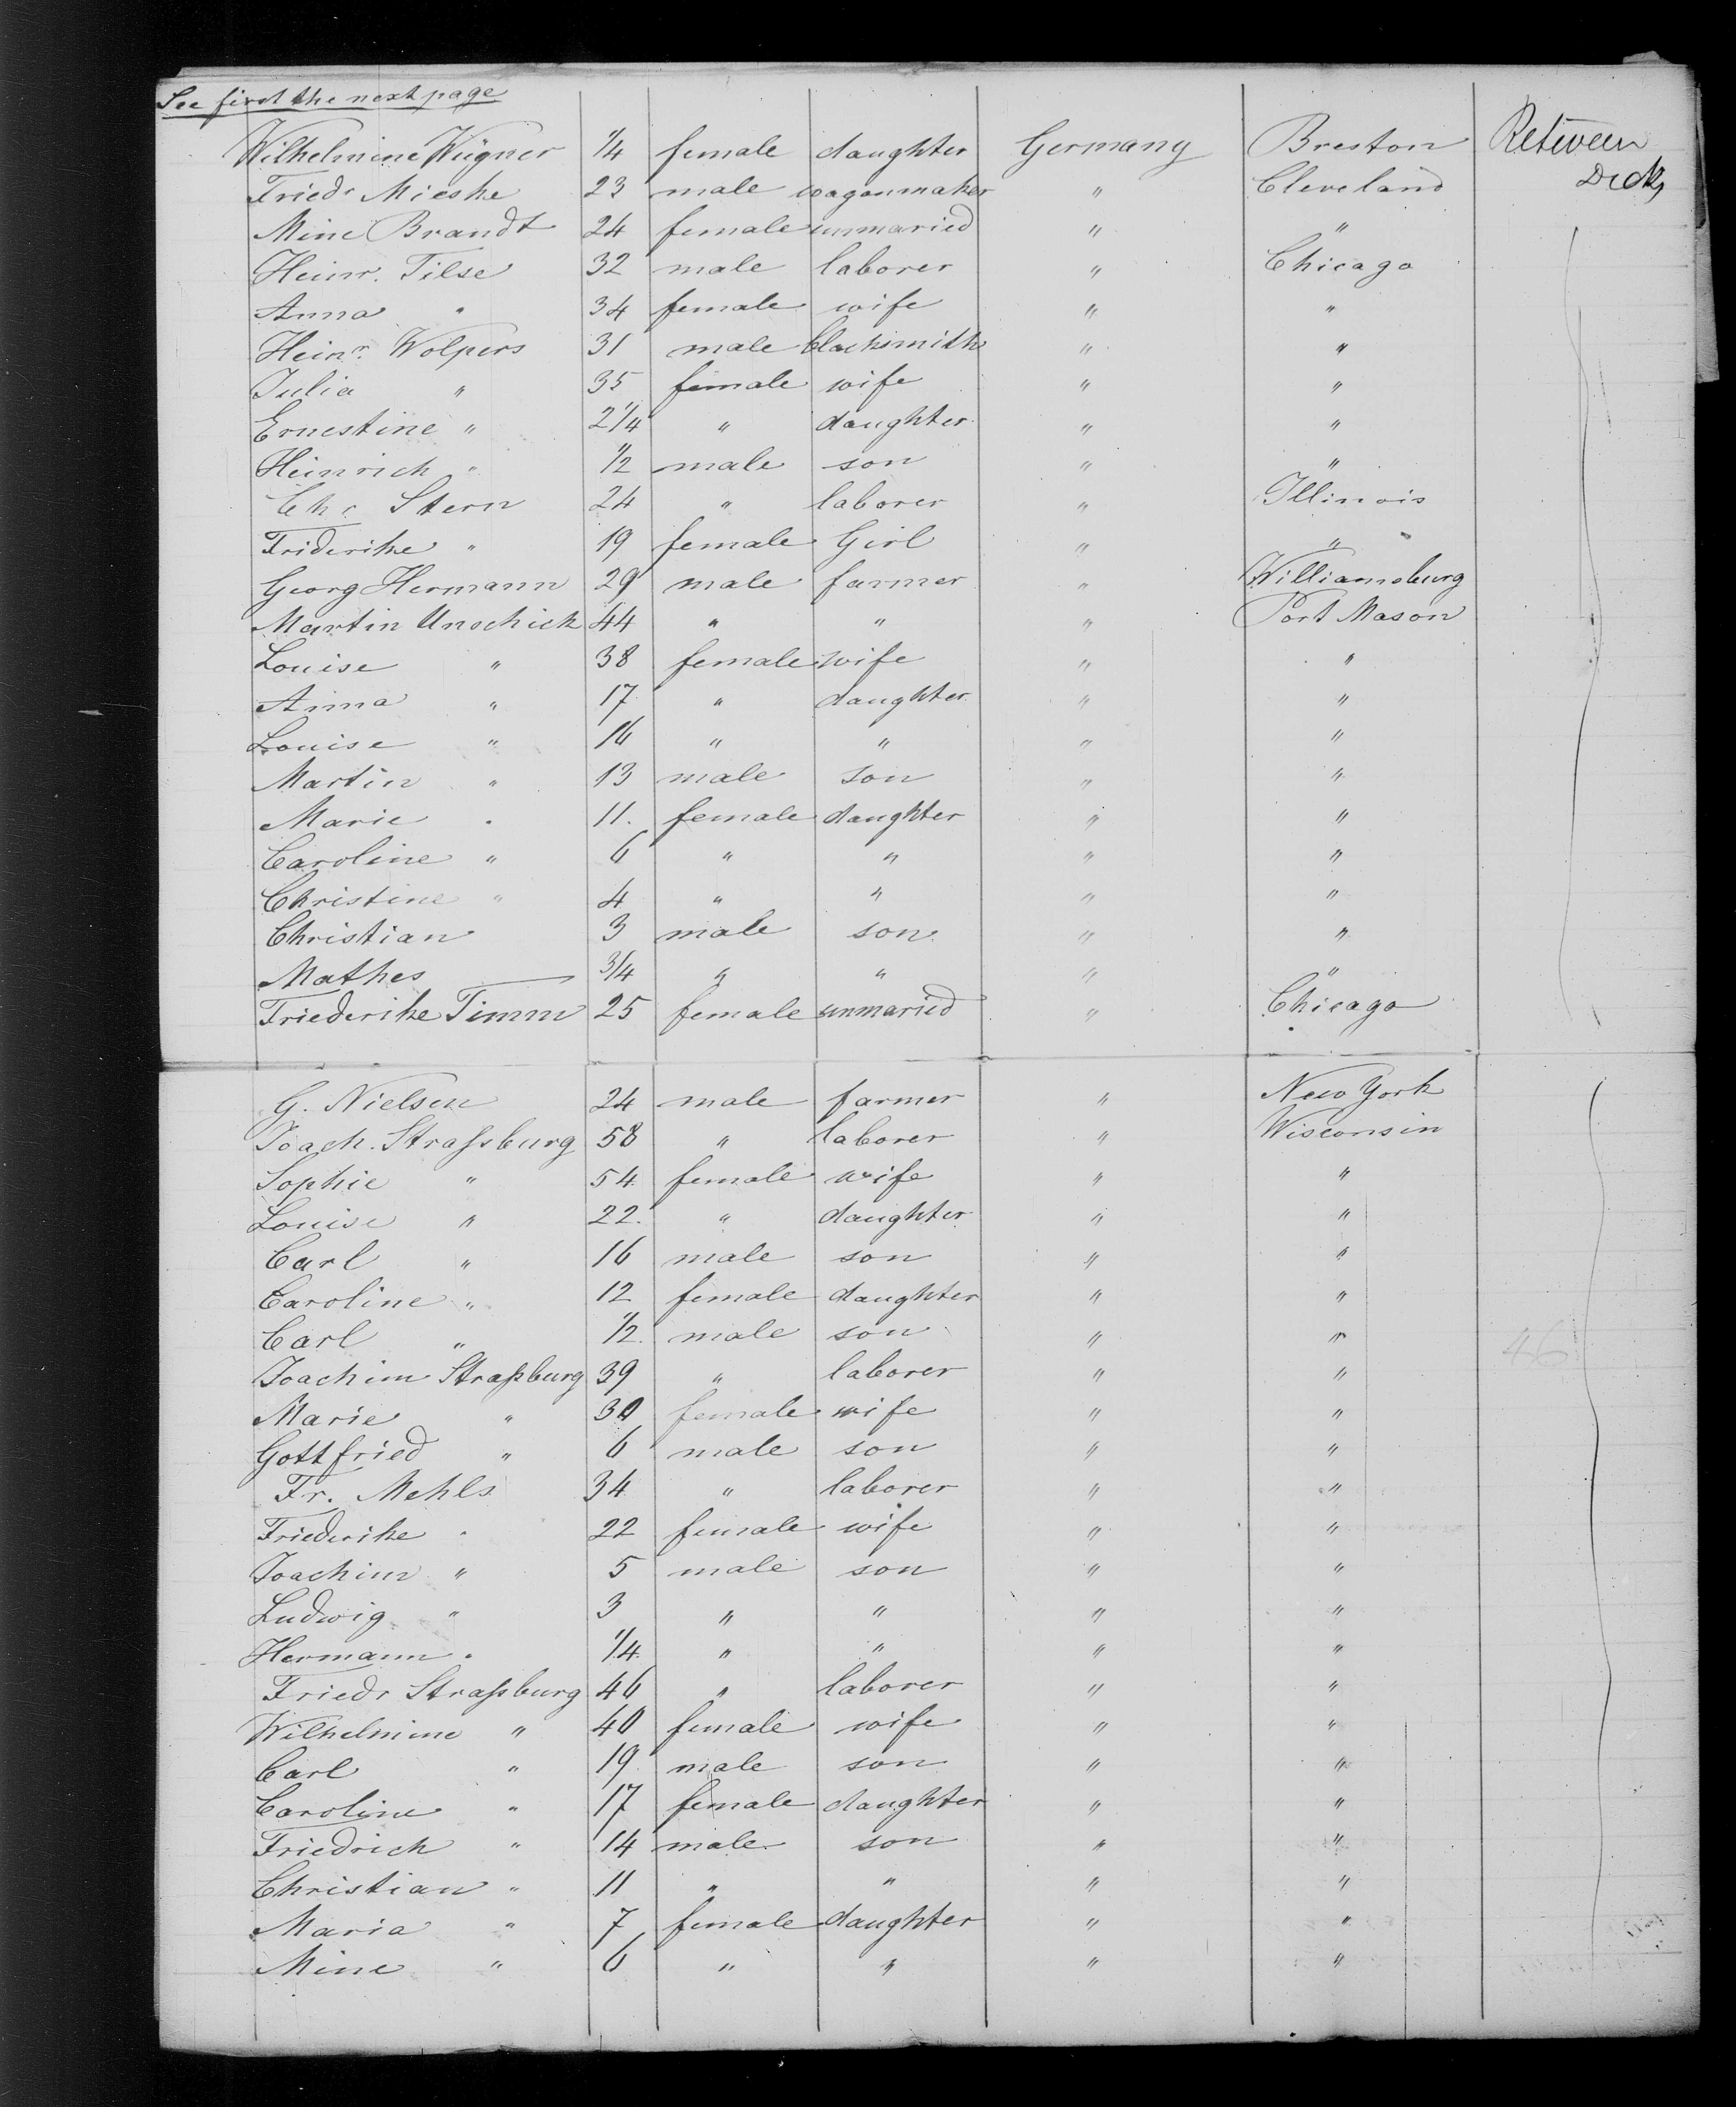 See first the next page
Wilhelmine Wügner 1/4 female daughter Germany Breston Between
Friedr Mieske 23 male wagonmaker " Cleveland Decks
Mine Brandt 24 female unmaried " "
Heinr. Tilse 32 male laborer " Chicago
Anna " 34 female wife " "
Heinr. Wolpers 31 male blacksmith " "
Julia " 35 female wife " "
Ernestine " 2 1/4 " daughter " "
Heinrich " 1/2 male son " "
Chr Stern 24 " laborer " Illinois
Friderike " 19 female Girl " "
Georg Hermann 29 male farmer " Williamsburg
Martin Unschick 44 " " " Port Mason
Louise " 38 female wife " "
Anna " 17 " daughter " "
Louise " 16 " " " "
Martin " 13 male son " "
Marie " 11. female daughter " "
Caroline " 6 " " " "
Christine " 4 " " " "
Christian 3 male son " "
Mathes 3/4 " " " "
Friederike Timm 25 female unmaried " Chicago
G. Nielsen 24 male farmer " New York
Joach. Straſsburg 58 " laborer " Wisconsin
Sophie " 54 female wife " "
Louise " 22. " daughter " "
Carl " 16 male son " "
Caroline " 12 female daughter " "
Carl " 1/2 male son " "
Joachim Straſsburg 39 " laborer " "
Marie " 30 female wife " "
Gottfried " 6 male son " "
Fr. Mehls 34 " laborer " "
Friederike " 22 female wife " "
Joachim " 5 male son " "
Ludwig " 3 " " " "
Hermann " 1/4 " " " "
Friedr Straſsburg 46 " laborer " "
Wilhelmine " 40 female wife " "
Carl " 19 male son " "
Caroline " 17 female daughter " "
Friedrich " 14 male son " "
Christian " 11 " " " "
Maria " 7 female daughter " "
Mine " 6 " " " "
46